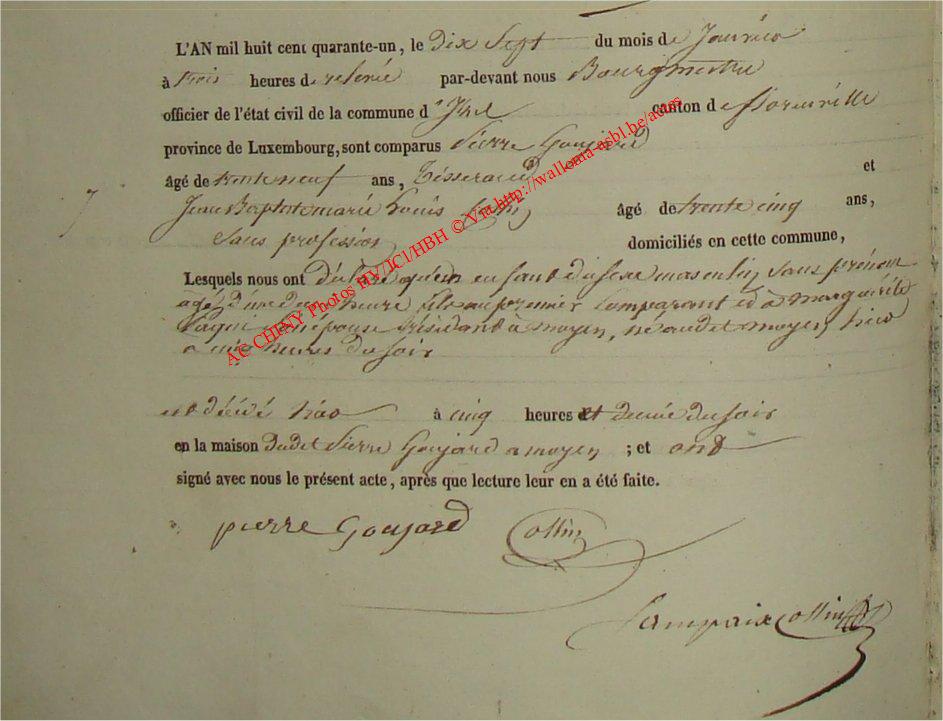 L'AN mil huit cent quarante-un, le Dix Sept du mois de Janvier
à trois heures de relevée par-devant nous Bourgmestre
officier de l'état civil de la commune d'Izel canton de florenville
province de Luxembourg, sont comparus Pierre Goujard
âgé de trente neuf ans, Tisserand et
7 Jean Baptiste marie Louis Collin âgé de trente cinq ans,
Sans profession domiciliés en cette commune,
Lesquels nous ont déclaré qu'un enfant du sexe masculin sans prénom
agé d'une demi heure, fils au premier Comparant et à marguerite
son épouse résidant à moyen, né audit moyen hier
à cinq heures du soir
est décédé hier à cinq heures et demie du soir
en la maison dudit Pierre Goujard a moyen ; et ont
signé avec nous le présent acte, après que lecture leur en a été faite.
pierre Goujard Collin
Lampaix Collin
AC-CHINY Photos MV/JCl/HBH © Via http://wallonia-asbl.be/actes